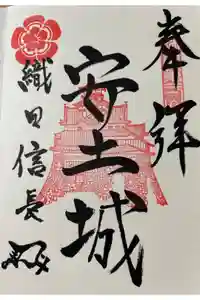 奉拝
安土城
織田信長